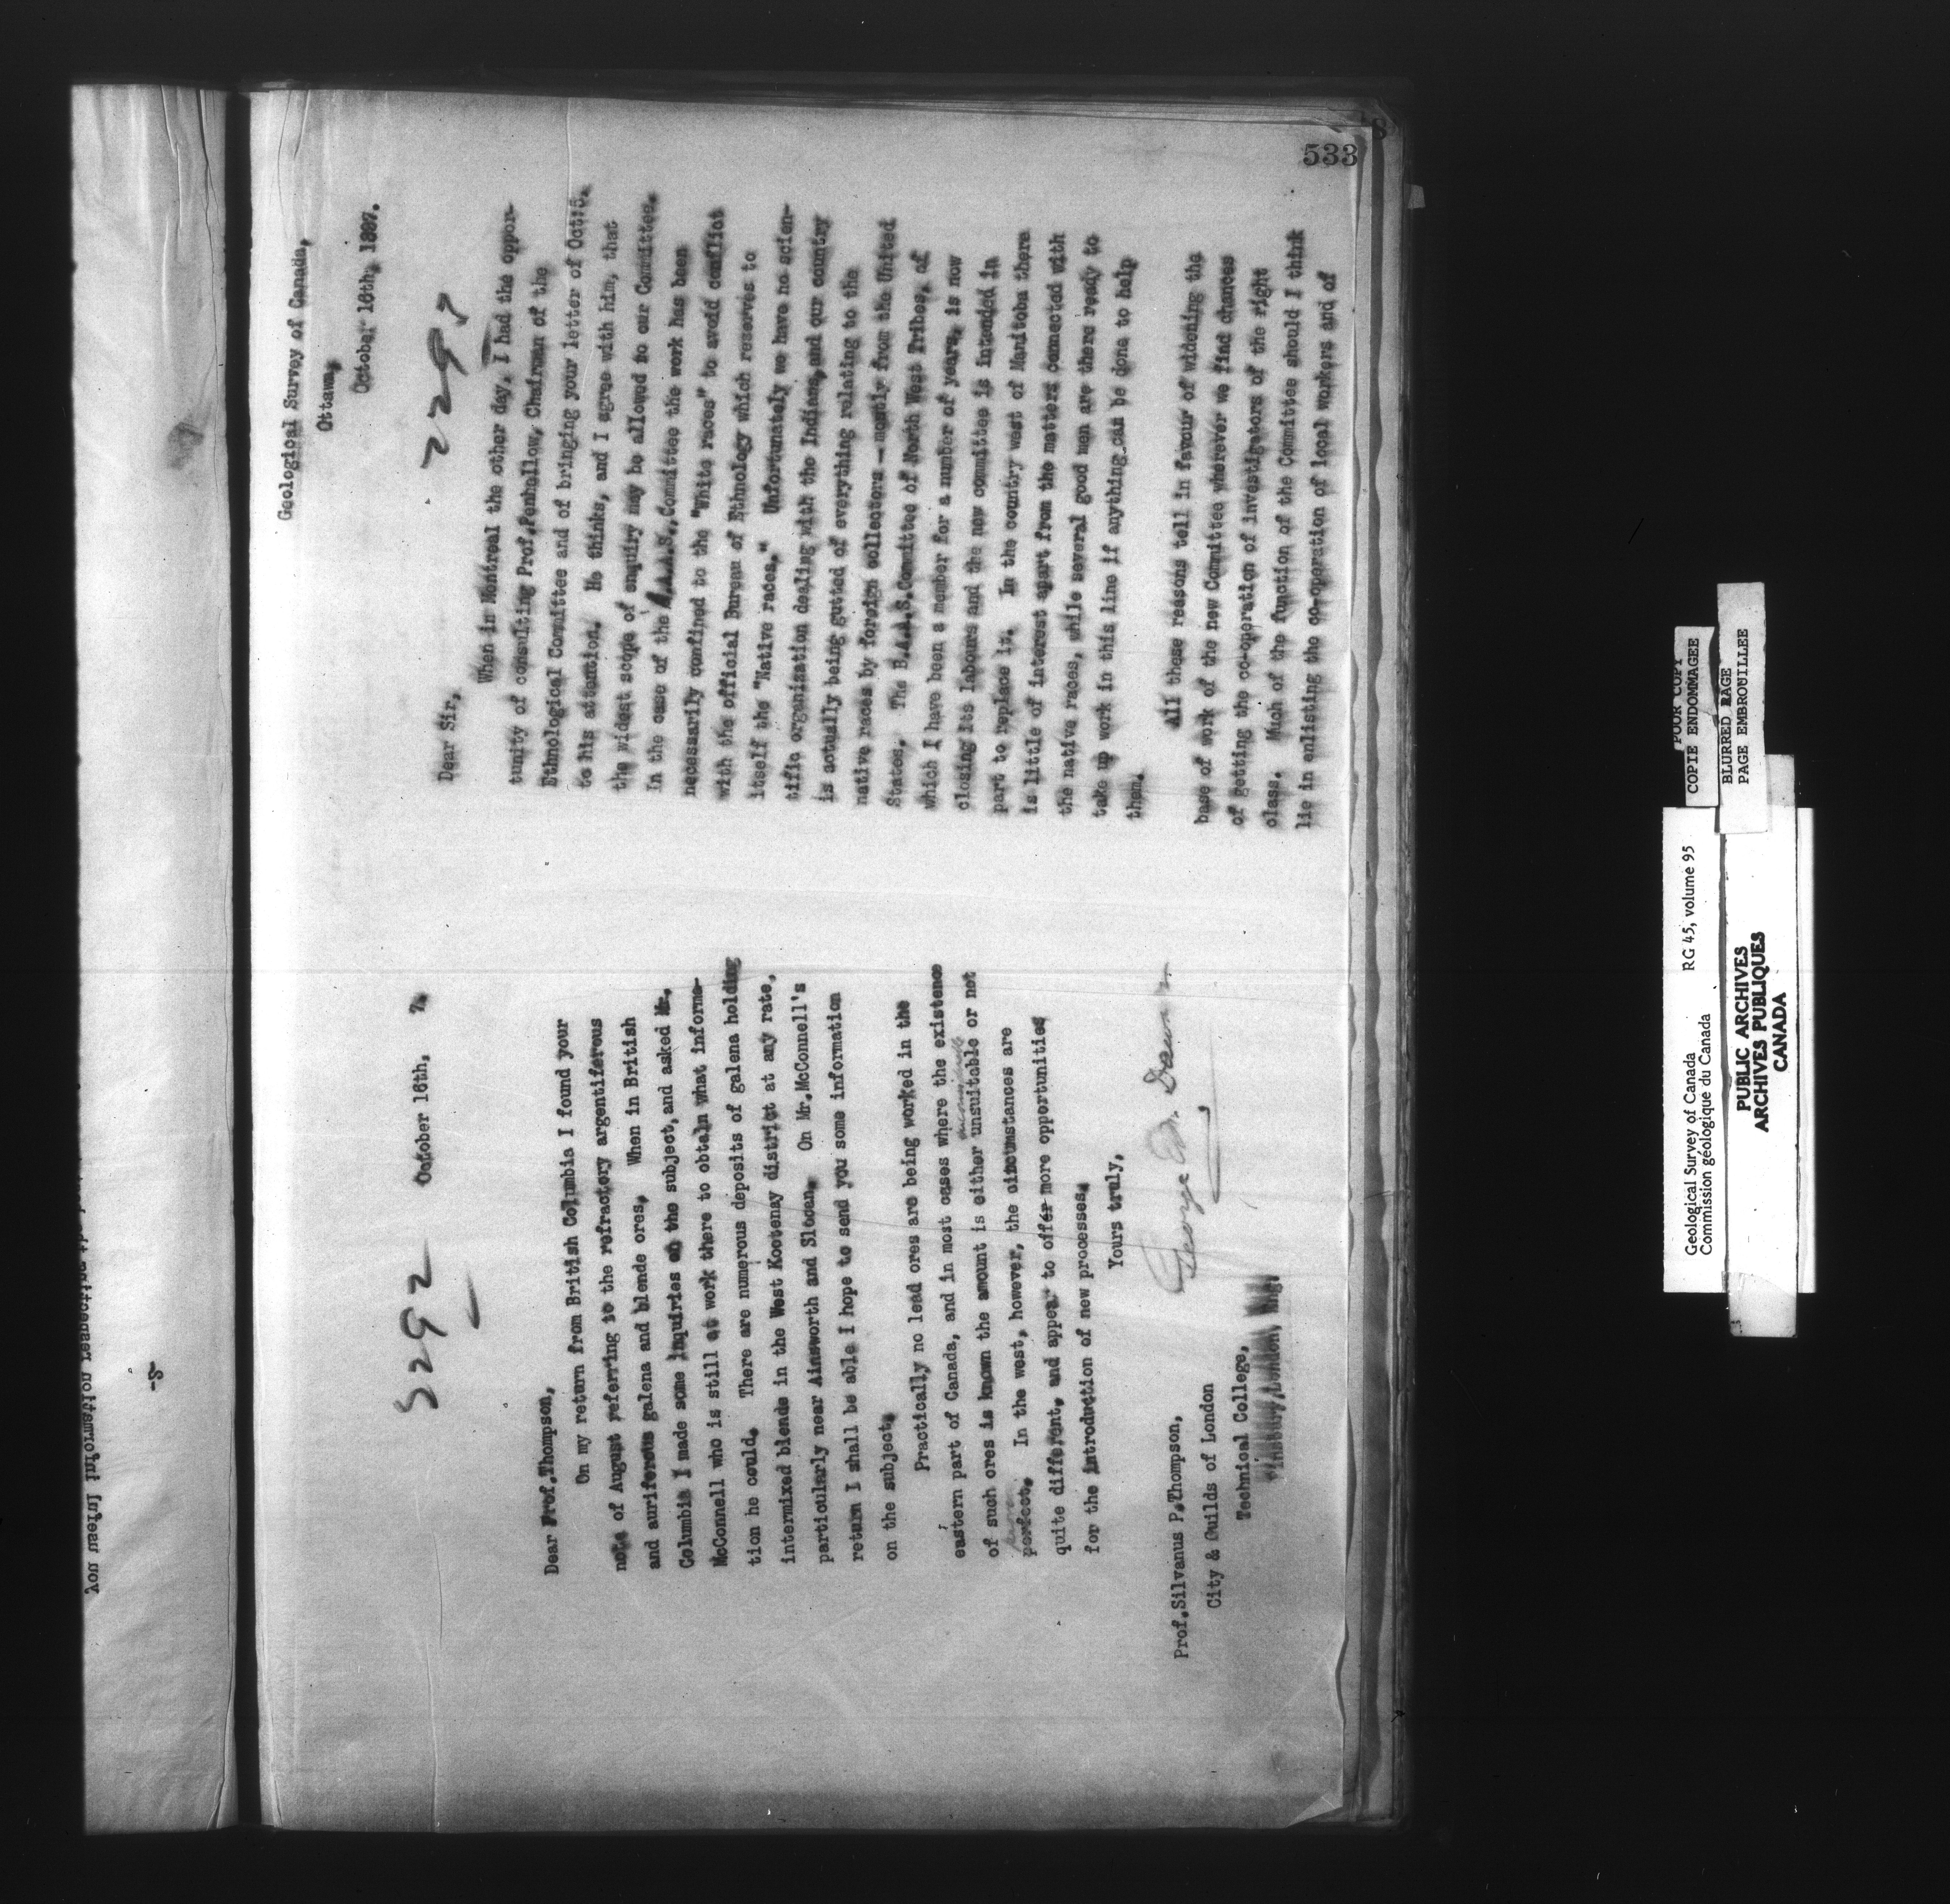 533
5292
October 16th, 7.
Dear Prof.Thompson,
On my return from British Columbia I found your
note of August referring to the refractory argentiferous
and auriferous galena and blende ores. When in British
Columbia I made some inquiries on the subject, and asked Mr.
McConnell who is still at work there to obtain what informa-
tion he could. There are numerous deposits of galena holding
intermixed blende in the West Kootenay district at any rate,
particularly near Ainsworth and Slocan. On Mr.McConnell's
return I shall be able I hope to send you some information
on the subject.
Practically no lead ores are being worked in the
eastern part of Canada, and in most cases where the existence
of such ores is known the amount is either unsuitable or not
perfect. In the west, however, the circumstances are
quite different, and appear to offer more opportunities
for the introduction of new processes.
Yours truly,
George M. Dawson
Prof.Silvanus P.Thompson,
City & Guilds of London
Technical College,
Finsbury, London, Eng.
Geological Survey of Canada,
Ottawa,
October 16th, 1897.
Dear Sir,
When in Montreal the other day, I had the oppor-
tunity of consulting Prof.Penhallow, Chairman of the
Ethnological Committee and of bringing your letter of Oct:5.
to his attention. He thinks, and I agree with him, that
the widest scope of enquiry may be allowed to our Committee.
In the case of the A.A.A.S. Committee the work has been
necessarily confined to the "White races" to avoid conflict
with the official Bureau of Ethnology which reserves to
itself the "Native races." Unfortunately we have no scien-
tific organization dealing with the Indians, and our country
is actually being gutted of everything relating to the
native races by foreign collectors - mostly from the United
States. The B.A.A.S. Committee of North West Tribes, of
which I have been a member for a number of years, is now
closing its labours and the new committee is intended in
part to replace it. In the country west of Manitoba there
is little of interest apart from the matters connected with
the native races, while several good men are there ready to
take up work in this line if anything can be done to help
them.
All these reasons tell in favour of widening the
base of work of the new Committee wherever we find chances
of getting the co-operation of investigators of the right
class. Much of the function of the Committee should I think
lie in enlisting the co-operation of local workers and of
-8-
POOR COPY
COPIE ENDOMMAGEE
BLURRED PAGE
PAGE EMBROUILLEE
Geological Survey of Canada RG 45, volume 95
Commission géologique du Canada
PUBLIC ARCHIVES
ARCHIVES PUBLIQUES
CANADA